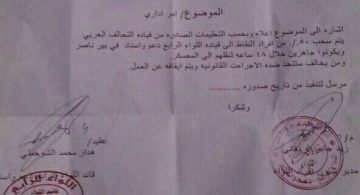 الموضوع / امر اداري
اشاره الى الموضوع اعلاه وبحسب التعليمات الصادره من قياده التحالف العربي
يتم سحب ٥٠٪ من افراد النقاط الى قياده اللواء الرابع دعم واسناد في بير ناصر
ويكونوا جاهزين خلال ٤٨ ساعه لنقلهم الى المعسكر.
ومن يخالف ستتخذ ضده الاجراءت القانونيه ويتم ايقافه عن العمل.
مرسل لتنفيذ من تاريخ صدوره ............
وشكرا
عقيد/
هدار محمد الشوحطي
قائد اللواء
اللواء الرابع